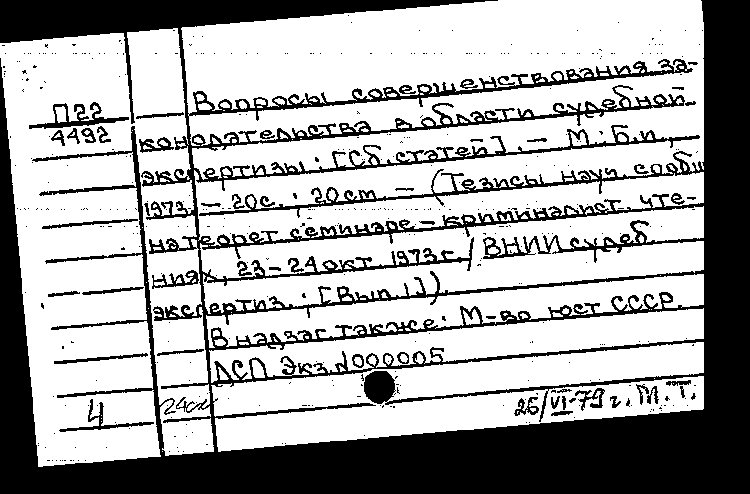 П22
4492
Вопросы совершенствования за-
конодательства в области судебной
экспертизы: [Сб. статей]. – М.: Б.и.,
1973. – 20с.; 20см. – (Тезисы науч. сообщ
на теорет семинаре – криминалист. чте-
ниях, 23-24 окт. 1973 г. / ВНИИ судеб.
экспертиз.; [Вып. 1]).
В надзаг. также: М-во юст СССР.
ДСП Экз. N000005
4
24см
26/VI-79 г. М.Т.